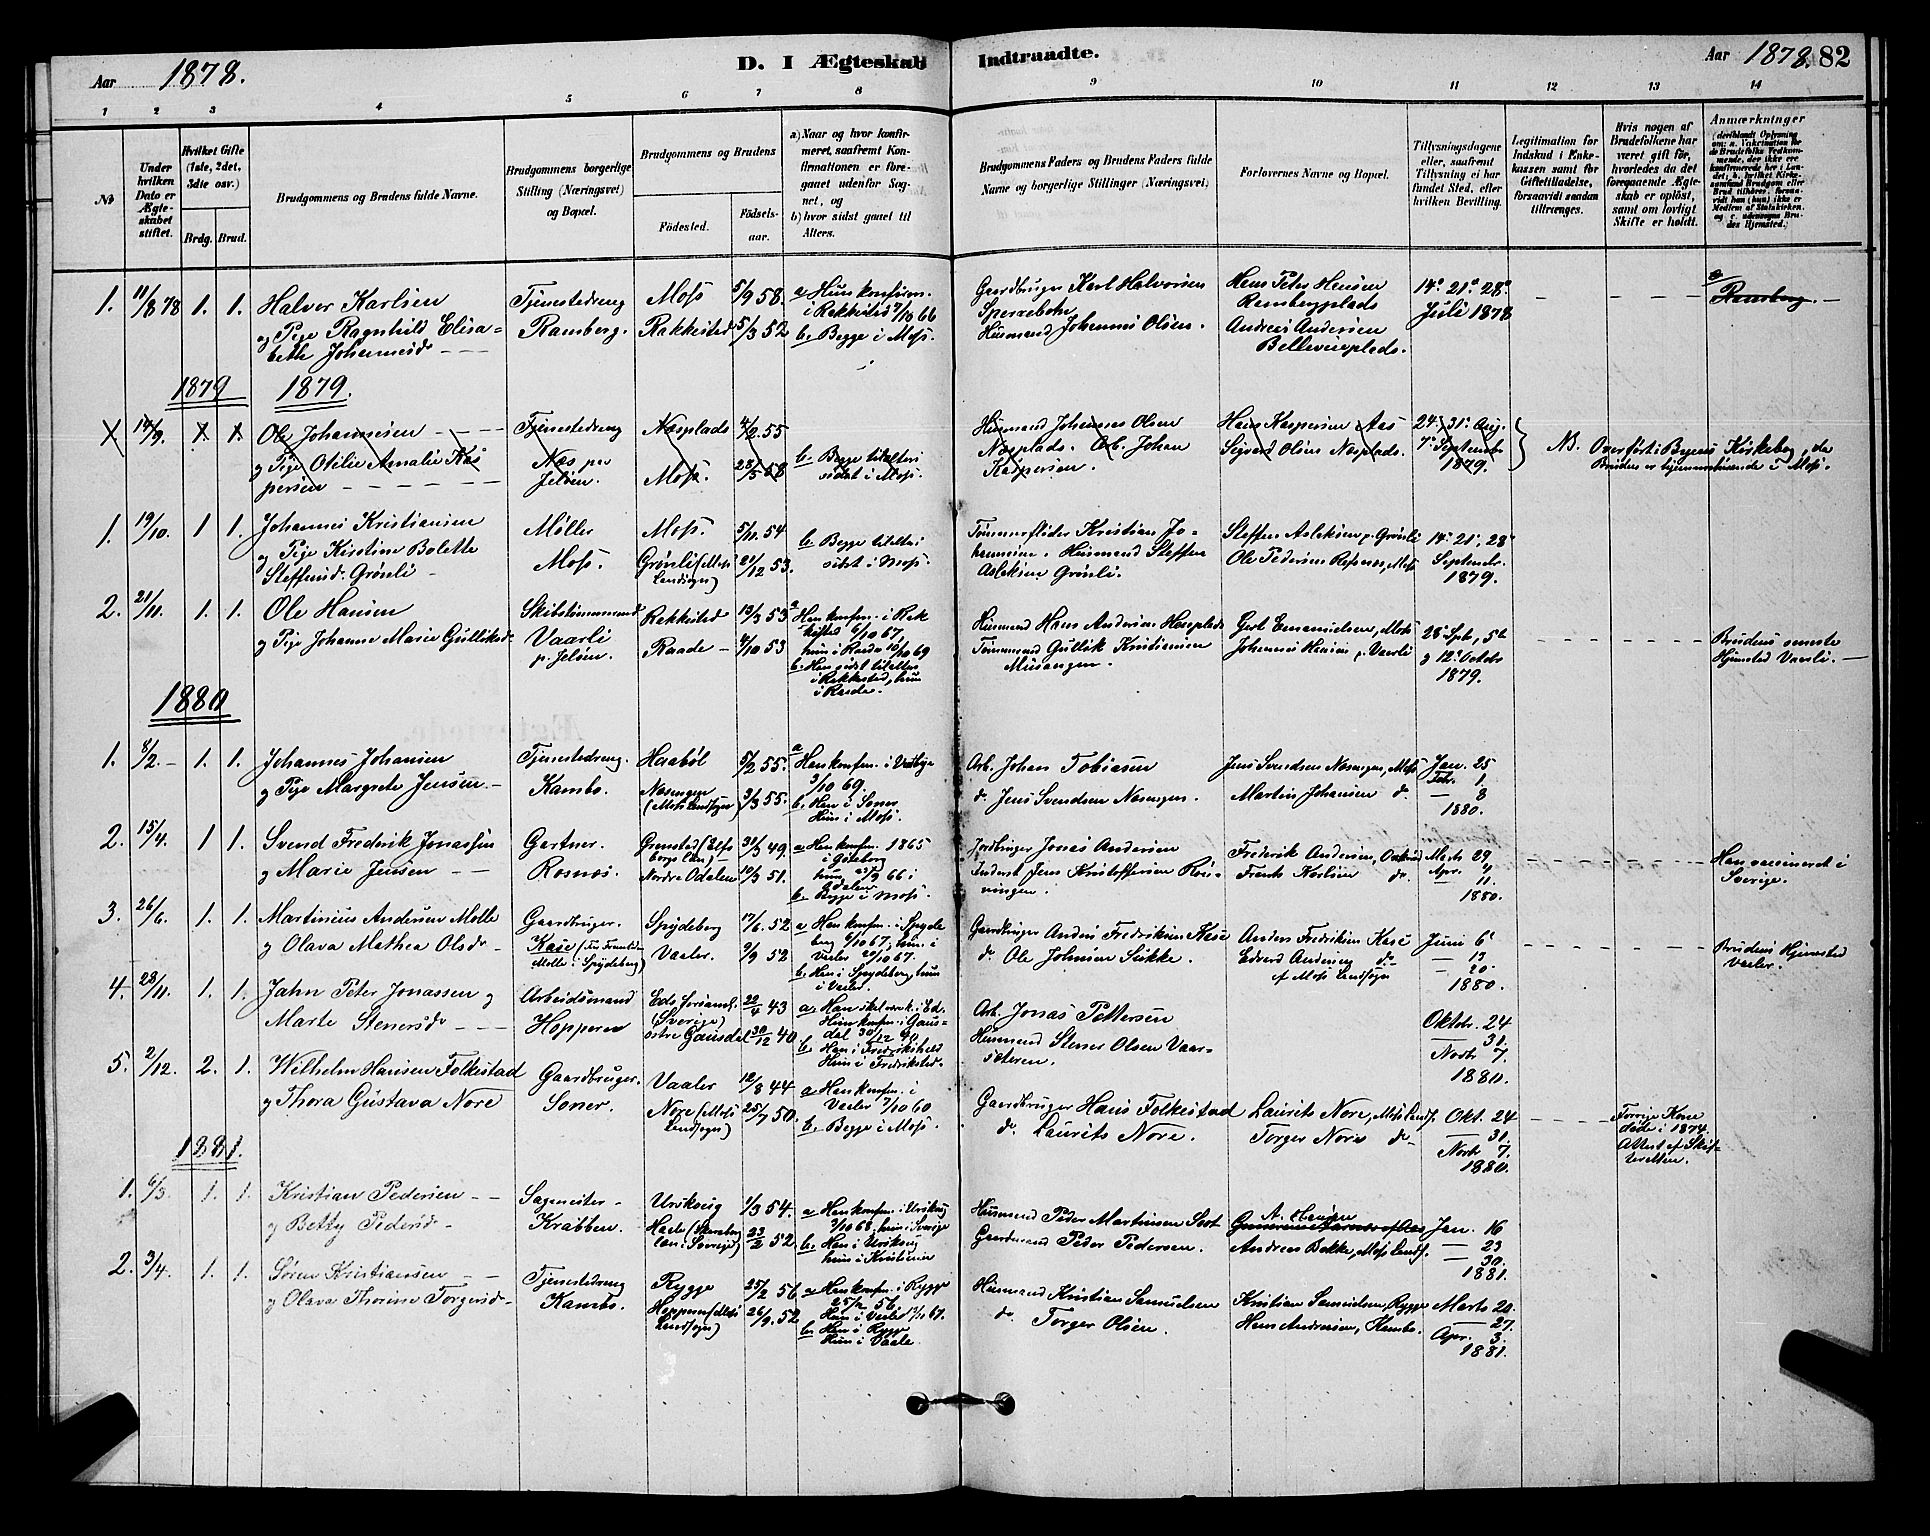 Aar 1878.
D. I Ægteskab Indtraadte.
Aar 1878. 82
1 2 3 4 5 6 7 8 9 10 11 12 13 14
No
Under hvilken Dato er Ægteskabet stiftet.
Hvilket Gifte (1ste, 2det, 3die osv.)
Brdg. Brud.
Brudgommens og Brudens fulde Navne.
Brudgommens borgerlige Stilling (Næringsvei) og Bopæl.
Brudgommens og Brudens
Fødested.
Fødselsaar.
a) Naar og hvor konfirmeret, saafremt Konfirmationen er foregaaet udenfor Sognet, og
b) hvor sidst gaaet til Alters.
Brudgommens Faders og Brudens Faders fulde Navne og borgerlige Stillinger (Næringsvei)
Forlovernes Navne og Bopæl.
Tillysningsdagene eller, saafremt Tillysning ei har fundet Sted, efter hvilken Bevilling.
Legitimation for Indskud i Enkekassen samt for Giftetilladelse, forsaavidt saadan tiltrænges.
Hvis nogen af Brudefolkene har været gift før, hvorledes da det foregaaende Ægteskab er opløst, samt om lovligt Skifte er holdt.
Anmærkninger
1. 11/8 78 1. 1. Halver Karlsen
og Pige Ragnhild Elisa-
beth Johannesdr
Tjenestedreng
Ramberg.
Moss 5/9 58.
Rakkestad 5/3 52
a Hun konfirm.
i Rakkestad 7/10 66
b. Begge i Moss.
Gaardbruger Karl Halvorsen
Husmand Johannes Olsen.
Hans Peter Hansen
Rambergplads
Andreas Andersen
14. 21. 28.
Juli 1878
Ramberg.
1879 1879.
14/9. 1. 1. Ole Johannesen
og Pige Otilie Amalie Kas
persen
Tjenestedreng
Næs pr
Jeløen.
Næsplads 4/2. 55
Moss. 28/5 58
b. Begge tilalters
sidst i Moss.
Husmand Johannes Olsen
Næsplads. Arb. Johan
Kaspersen.
Hans Kaspersen Aas
Sigvard Olsen Næsplads.
24. 31. Aug.
7. September
1879.
NB. Overført i Byens Kirkebog, da
Bruden er hjemmehørende i Moss.
1. 19/10. 1 1. Johannes Kristiansen
og Pige Kirstine Bolette
Steffensdr Grønli
Møller
Moss.
Moss. 5/11. 54
Grønli (Moss
Landsogn) 21/12 53.
b. Begge tilalters
sidst i Moss.
Tømmerflöder Kristian Jo-
hannesen. Husmand Steffen
Aslaksen Grönli.
Steffen Aslaksen p. Grönli
Ole Pedersen, Moss
14. 21. 28.
Septembr.
1879.
2. 21/11. 1. 1. Ole Hansen
og Pige Johanne Marie Gulliksdr
Skibstømmermand
Vaarli
p. Jeløen.
Rakkestad 13/3 53
Raade 4/10 53
a Han konfm. i Rak
kestad 6/10 67,
hun i Raade 10/10 69
b. Han sidst tilalters
i Rakkestad, hun
i Raade.
Husmand Hans Andersen
Tømmermand Gullik Kristiansen
Gert Emanuelsen, Moss
Johannes Hansen p. Vaarli
28. Sptr, 5te
og 12. Octobr
1879.
Brudens seneste
Hjemsted Vaarli.
1880
1. 8/2. 1. 1. Johannes Johansen
og Pige Margrete Jensen.
Tjenestedreng.
Kambo.
Haabøl 5/2 55.
Næsengen
(Moss Landsogn) 3/3 55.
a Han konfm. i Vestby
3/10 69.
b. Han i Soner
Hun i Moss.
Arb. Johan Tobiasen
do. Jens Svendsen Næsengen.
Jens Svendsen Næsengen, Moss
Martin Johansen do.
Jan. 25
Febr. 1.
8
1880.
2. 15/4. 1 1. Svend Fredrik Jonassen
og Marie Jensen
Gartner.
Rosnæs.
Grimstad (Elfs
borgs Län) 31/3 49.
Nordre Odalen 10/3 51.
a Han konfm. 1865
i Göteborg
hun 23/9 66 i
Odalen
b. Begge i Moss.
Jordbruger Jonas Andersen
Inderst Jens Kristoffersen
Frederik Andersen
Frants Karlsen do.
Marts 29
Apr. 4
11.
1880.
Han vaccineret i
Sverige.
3. 26/6. 1. 1. Martinius Andersen Molle
og Olava Mathea Olsdr
Gaardbruger.
Molle i Spydeberg)
Spydeberg 17/6. 52
Vaaler. 9/9 52
a Han konfm. i Spyde
berg 6/10 67, hun i
Vaaler 29/10 67.
b. Han i Spydeberg, hun
i Vaaler.
Gaardbruger Anders Fredriksen Kase
do. Ole Johnsen Sukke.
Anders Fredriksen Kase
Edvard Andersen do
af Moss Landsogn
Juni 6
13
20.
1880.
Brudens Hjemsted
Vaaler.
4. 28/11. 1. 1. Jahn Peter Jonassen og
Marte Stenersdr
Arbeidsmand
Hoppern
Eds forsaml.
(Sverige) 22/4 43
østre Gausdal 30/12 40.
b. Han i Fredrikshald
Hun i Fredrikstad.
Arb. Jonas Pettersen
Husmand Stener Olsen Vaar-
sæteren.
Oktobr. 24
31.
Novbr 7.
1880.
5. 2/12. 2. 1. Wilhelm Hansen Folkestad
og Thora Gustava Nore
Gaardbruger.
Soner.
Vaaler 12/8 44
Nore (Moss
Landsogn) 25/7 50.
a Han konfm. i
Vaaler 7/10 60
b. Begge i Moss.
Gaardbruger Hans Folkestad
do. Laurits Nore.
Laurits Nore, Moss Lands.
Torger Nore do
Okt. 24
31.
Novbr 7.
1880.
Forrige Kone
døde i 1874.
Attest af Skif-
teretten.
1881.
1. 6/3. 1. 1. Kristian Pedersen
og Betty Pedersdr
Sagmester
Krabben.
Urskoug 1/3 54.
län i Sverige) 23/2 52.
a Han konfm. i Urskoug
3/10 68, hun i Sverige
b. Han i Urskoug
hun i Kristiania
Husmand Peder Martinsen
Gaardmand Peder Pedersen.
A. Hansen
Andreas Bakke, Moss Lands.
Jan. 16
23
30.
1881.
2. 3/4. 1. 1. Søren Kristiansen
og Olava Thorine Torgersdr
Tjenestedreng
Kambo.
Rygge 25/2 56
Hoppern (Moss
Landsogn) 26/9. 52
a Han konfm. i Rygge
Hun i Vaaler 67.
b. Han i Rygge
Hun i Vaale.
Husmand Kristian Samuelsen
do. Torger Olsen.
Kristian Samuelsen, Rygge
Hans Andersen, Kambo.
Marts 20.
27.
Apr. 3.
1881.